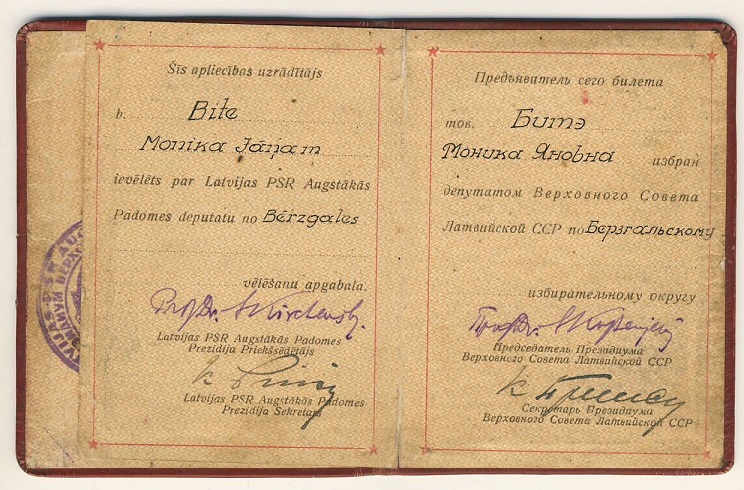 Šīs apliecības uzrādītājs
b. Bite
Monika Jāņa m
ievēlēts par Latvijas PSR Augstākās
Padomes deputatu no Bērzgales
vēlēšanu apgabala.
Prof. Dr.
Latvijas PSR Augstākās Padomes
Prezidija Priekšsēdētājs
Latvijas PSR Augstākās Padomes
Prezidija Sekretars
Предъявитель сего билета
тов. Битэ
Моника Яновна избран
депутатом Верховного Совета
Латвийской ССР по Берзгальскому
избирательному округу
Председатель Президиума
Верховного Совета Латвийской ССР
Секретарь Президиума
Верховного Совета Латвийской ССР